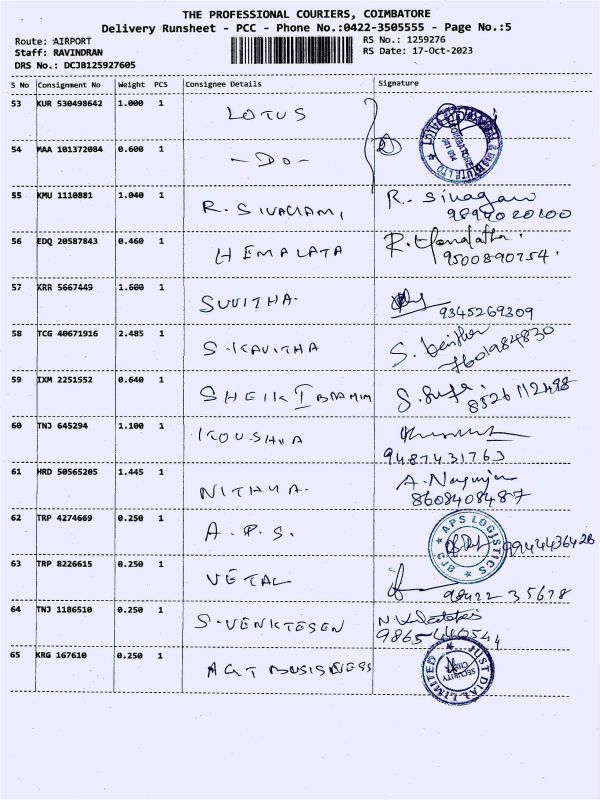 THE PROFESSIONAL COURIERS, COIMBATORE
Delivery Runsheet - PCC - Phone No.:0422-3505555 - Page No.:5
Route: AIRPORT RS No.: 1259276
Staff: RAVINDRAN RS Date: 17-Oct-2023
DRS No.: DCJB125927605
S No Consignment No Weight PCS Consignee Details Signature
53 KUR 530498642 1.000 1 LOTUS
54 MAA 101372084 0.600 1 -DO-
55 KMU 1110881 1.040 1 R. SIVAGAMI R. Sivagami
9894020100
56 EDQ 20587843 0.460 1 HEMALATA R. Hemalatha
9500890754
57 KRR 5667449 1.600 1 SUVITHA
9345269309
58 TCG 40671916 2.485 1 S. KAVITHA S.
7601984830
59 IXM 2251552 0.640 1 SHEIK IBRAHIM S.
8526112498
60 TNJ 645294 1.100 1 KOUSHIA
9487431763
61 HRD 50565205 1.445 1 NITHYA. A.
8608408487
62 TRP 4274669 0.250 1 A.P.S. APS LOGISTICS CJB 9944436428
63 TRP 8226615 0.250 1 VETAL
98422 35678
64 TNJ 1186510 0.250 1 S. VENKTESEN
9865440544
65 KRG 167610 0.250 1 AGT BUSISNESS JUST DIAL LIMITED SECURITY